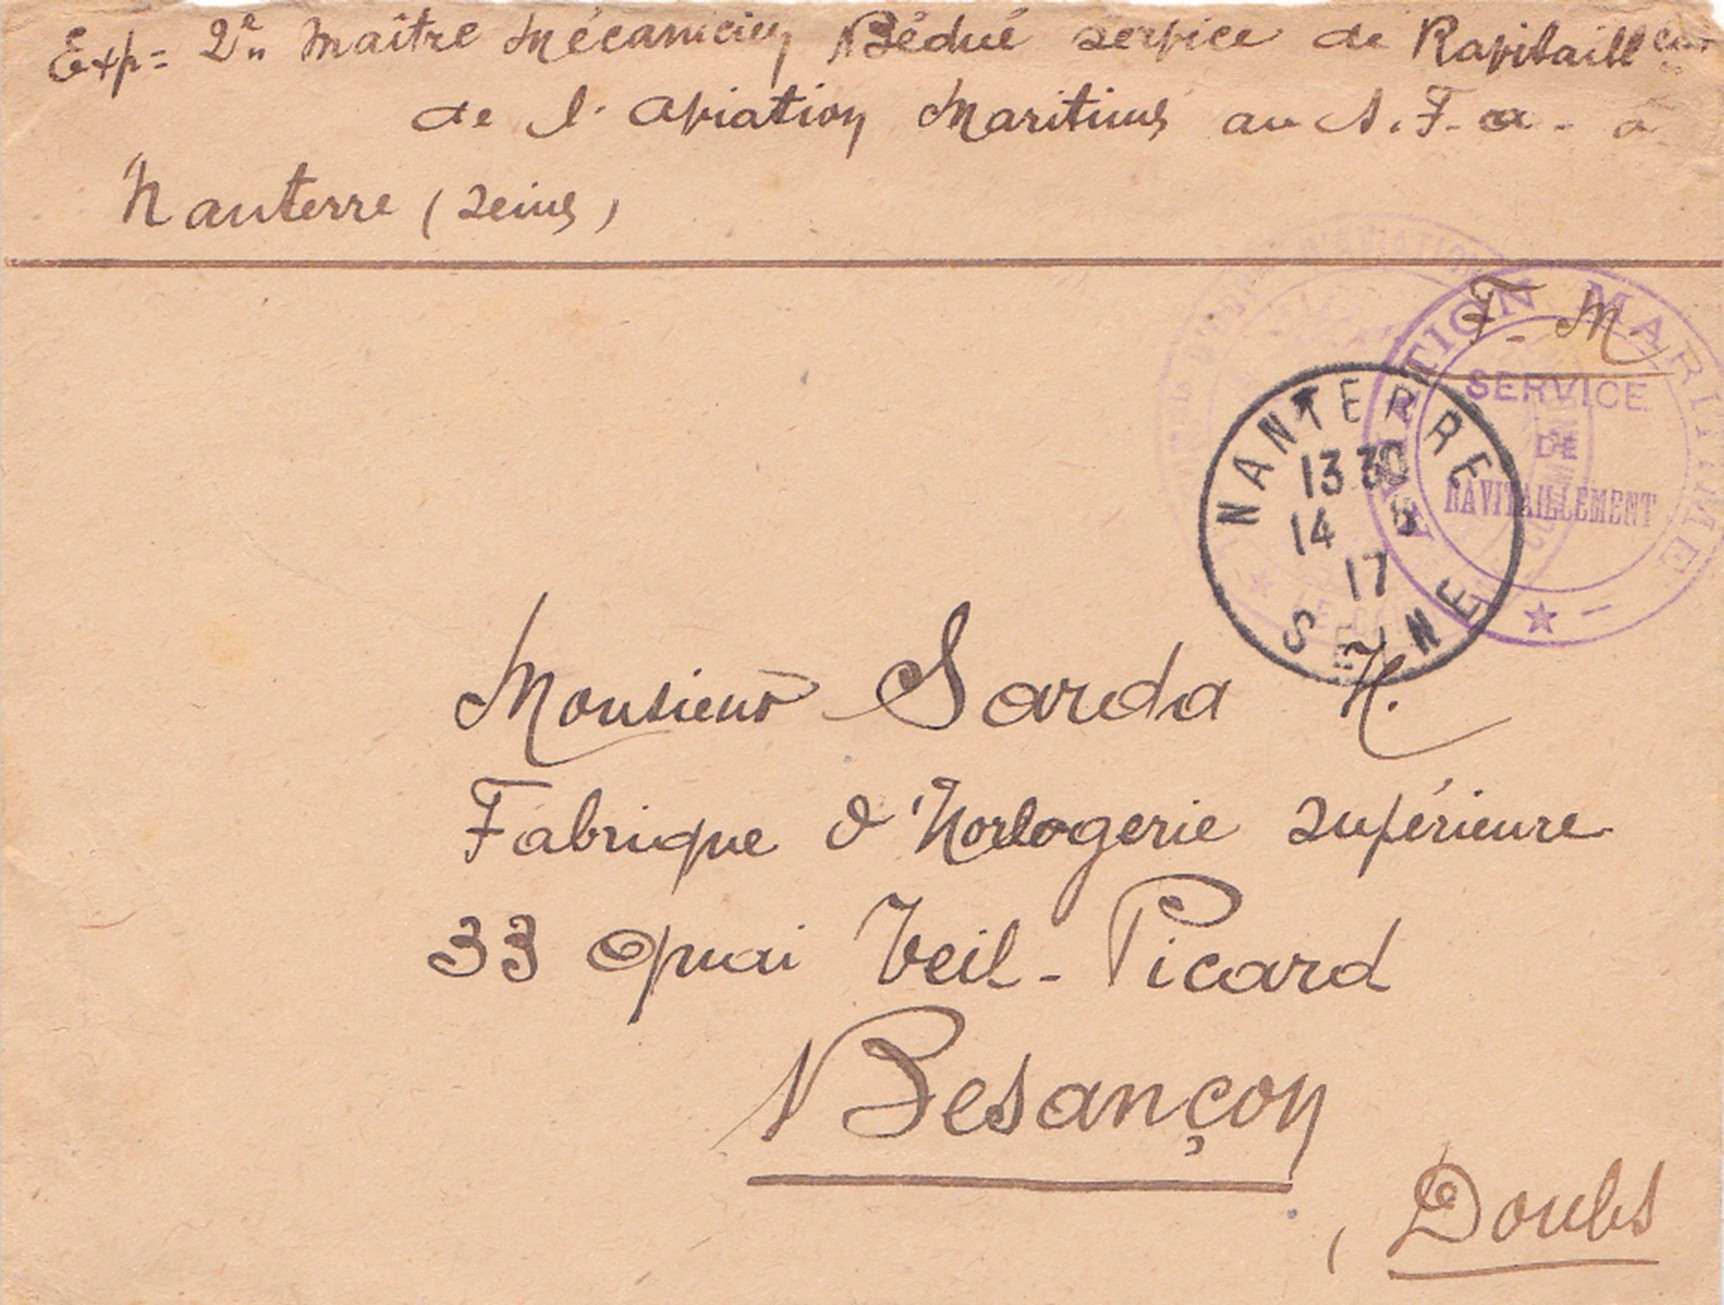 Exp= 2en Maître Mécanicien Bédué service de Ravitaill
de l'Aviation Maritime au S.F.A. à
Nanterre (Seine)
F. M.
AVIATION MARITIME
SERVICE
DE
RAVITAILLEMENT
NANTERRE
13 30
14 5
17
SEINE
Monsieur Sarda H.
Fabrique d'Horlogerie supérieure
33 Quai Veil-Picard
Besançon
(Doubs